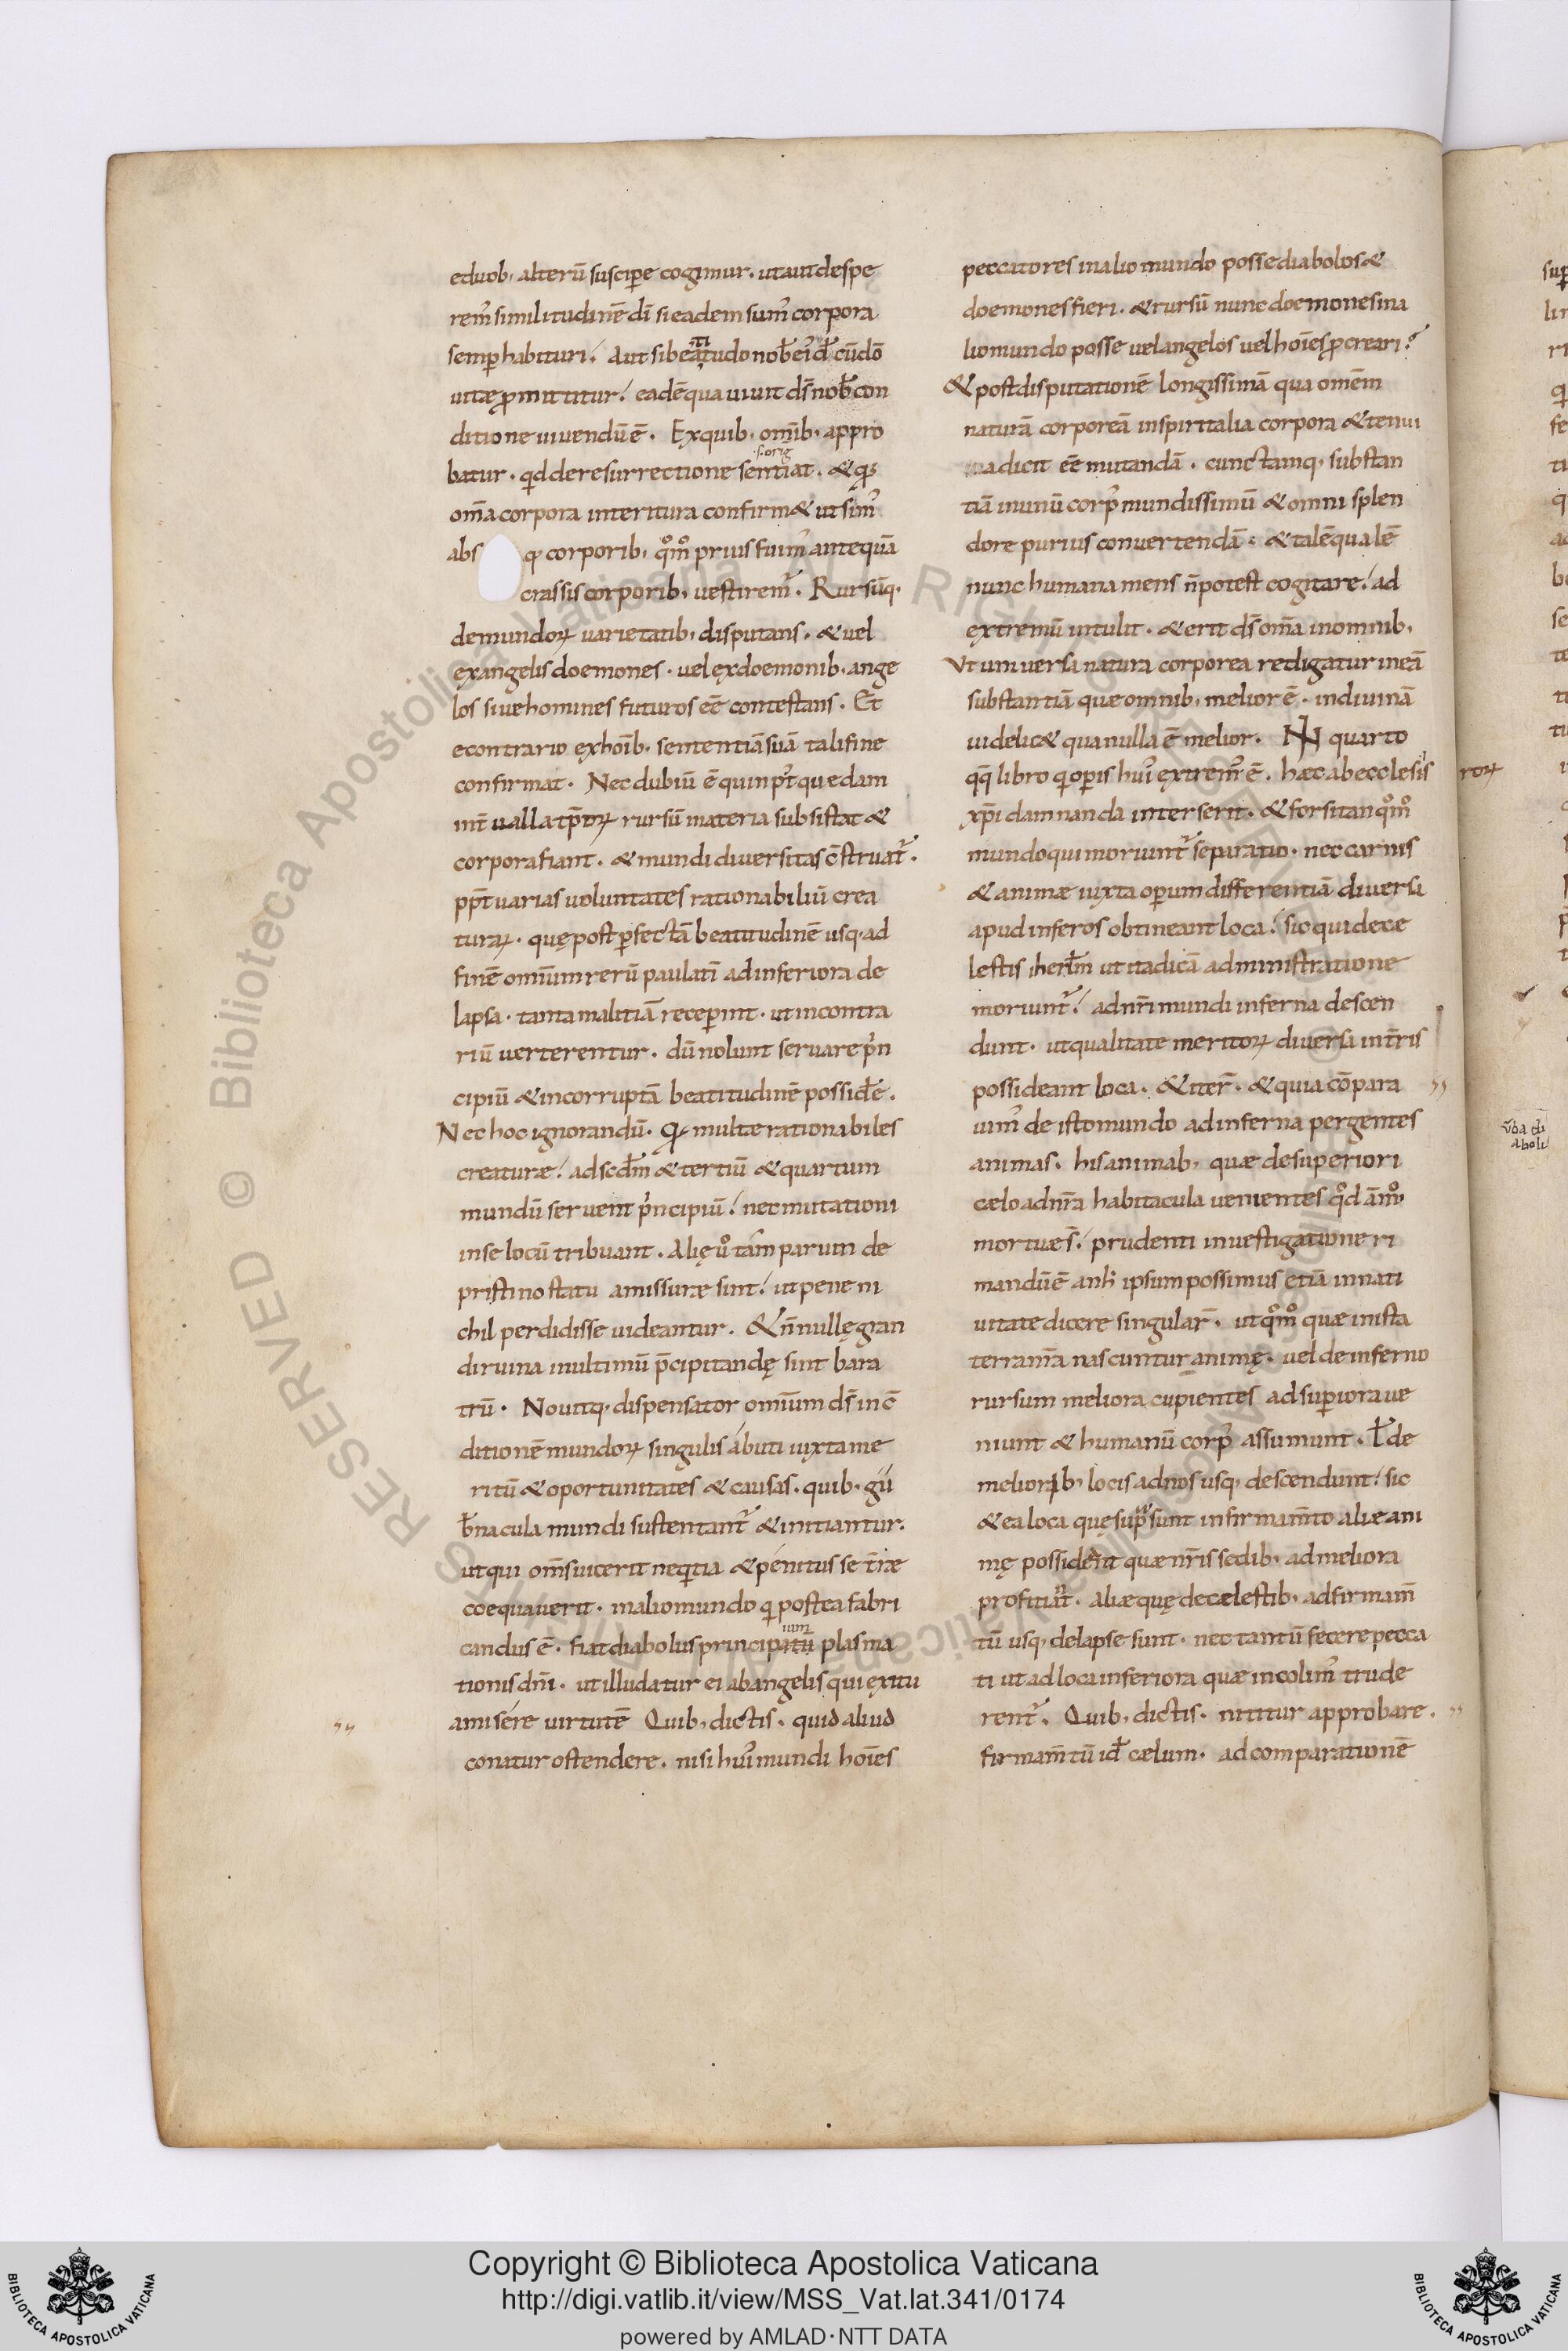 eduob; alterū suscip̄e cogimur. utaut despe
rem᾽ similitudinē dī si eadem sum᾽ corpora
semp̄ habituri. Aut si beatitudo nob̄ ei᾽ d̄ cūdō
uitæ promittitur. eadē qua uiuit ds̄ nob̄ con
ditione uiuendū ē. Ex quib; omīb; appro
s. orig
batur. qd de resurrectione sentiat. & qꝫ
om̄a corpora interitura confirm& ut sim᾽
absqꝫ corporib; qͦmͦ prius fuim᾽ antequā
crassis corporib; uestirem᾽. Rursūq;
demundoꝝ uarietatib; disputans. & uel
ex angelis doemones. uel ex doemonib; ange
los siue homines futuros eē contestans. Et
econtrario ex hoīb; sententiā suā tali fine
confirmat. Nec dubiū ē quin p᾽t quedam
int̄ualla tp̄oꝝ rursū materia subsistat &
corpora fiant. & mundi diuersitas c̄struat᾽.
pp̄t uarias uoluntates rationabiliū crea
turaꝝ. quę post p̄fectā beatitudinē usq; ad
finē omīum rerū paulatī ad inferiora de
lapsa. tanta malitiā recep̄int. ut in contra
riū uerterentur. dū nolunt seruare p᾽n
cipiū & incorruptā beatitudinē possid̄e.
Nec hoc ignorandū. qꝫ multæ rationabiles
creaturæ. ad scd̄m & tertiū & quartum
mundū seruent p᾽ncipiū. nec mutationi
in se locū tribuant. Alię uͦ tam parum de
pristino statu amissuræ sint. ut pene ni
chil perdidisse uideantur. & n̄nullę gran
di ruina in ultimū p̄cipitandę sint bara
trū. Nouitq; dispensator omīum ds̄ in c̄
ditionē mundoꝝ singulis abuti iuxta me
ritū & oportunitates & causas. quib; gu
b̄nacula mundi sustentant᾽ & initiantur.
ut qui om̄s uicerit neqitia & penitus se t̄ræ
coequauerit. in alio mundo qi postea fabri
candus ē. fiat diabolus principatū plasma
tionis dn̄i. ut illudatur ei ab angelis qui exitu
amisere uirtutē Quib; dictis. quid aliud
conatur ostendere. nisi hui᾽ mundi hoīes
peccatores in alio mundo posse diabolos &
doemones fieri. & rursū nunc doemones in a
lio mundo posse uel angelos uel hoīes procreari?
& post disputationē longissimā qua omēm
naturā corporeā in spiritalia corpora & tenui
a dicit eē mutandā. cunctamq; substan
tiā in unū corp᾽ mundissimū & omni splen
dore purius conuertendā. & talē qualē
nunc humana mens n̄ potest cogitare. ad
extremū intulit. & erit ds̄ om̄a in omnib;
Vt uniuersa natura corporea redigatur in eā
substantiā quæ omnib; melior ē. in diuinā
uidelic& qua nulla ē melior. IN quarto
qq̄ libro qi opis hui᾽ extrem᾽ ē. hæc ab ecclesiis
xp̄i damnanda interserit. & forsitan qͦmͦ
mundo qui moriunt᾽ separatio. nec carnis
& animæ iuxta op̄um differentiā diuersa
apud inferos obtineant loca. sic qui de ce
lestis iherl̄m ut ita dicā administratione
moriunt᾽. ad nr̄i mundi inferna descen
dunt. ut qualitate meritoꝝ diuersa in t̄ris
possideant loca. & iter̄. & quia cōpara
uim᾽ de isto mundo ad inferna pergentes
animas. his animab; quæ de superiori
cælo ad nr̄a habitacula uenientes qͦdāmͦ
mortuæ s̄. prudenti inuestigatione ri
mandū ē an h̄ ipsum possimus etiā in nati
uitate dicere singular̄. ut qͦmͦ quæ in ista
terra nr̄a nascuntur animę. uel de inferno
rursum meliora cupientes ad sup̄iora ue
niunt & humanū corp᾽ assumunt. ł de
meliorib; locis ad nos usq; descendunt. sic
& ea loca quę sup᾽ sunt in firmam̄to aliæ ani
mę possideant quæ nr̄is sedib; ad meliora
proficiāt. aliæ quę de cælestib; ad firmam̄
tū usq; delapse sunt. nec tantū fecere pecca
ti ut ad loca inferiora quæ incolim᾽ trude
rent᾽. Quib; dictis. nititur approbare.
firmam̄tū id̄ cælum. ad comparationē
ūba di
aboli
Copyright © Biblioteca Apostolica Vaticana
http://digi.vatlib.it/view/MSS_Vat.lat.341/0174
powered by AMLAD·NTT DATA